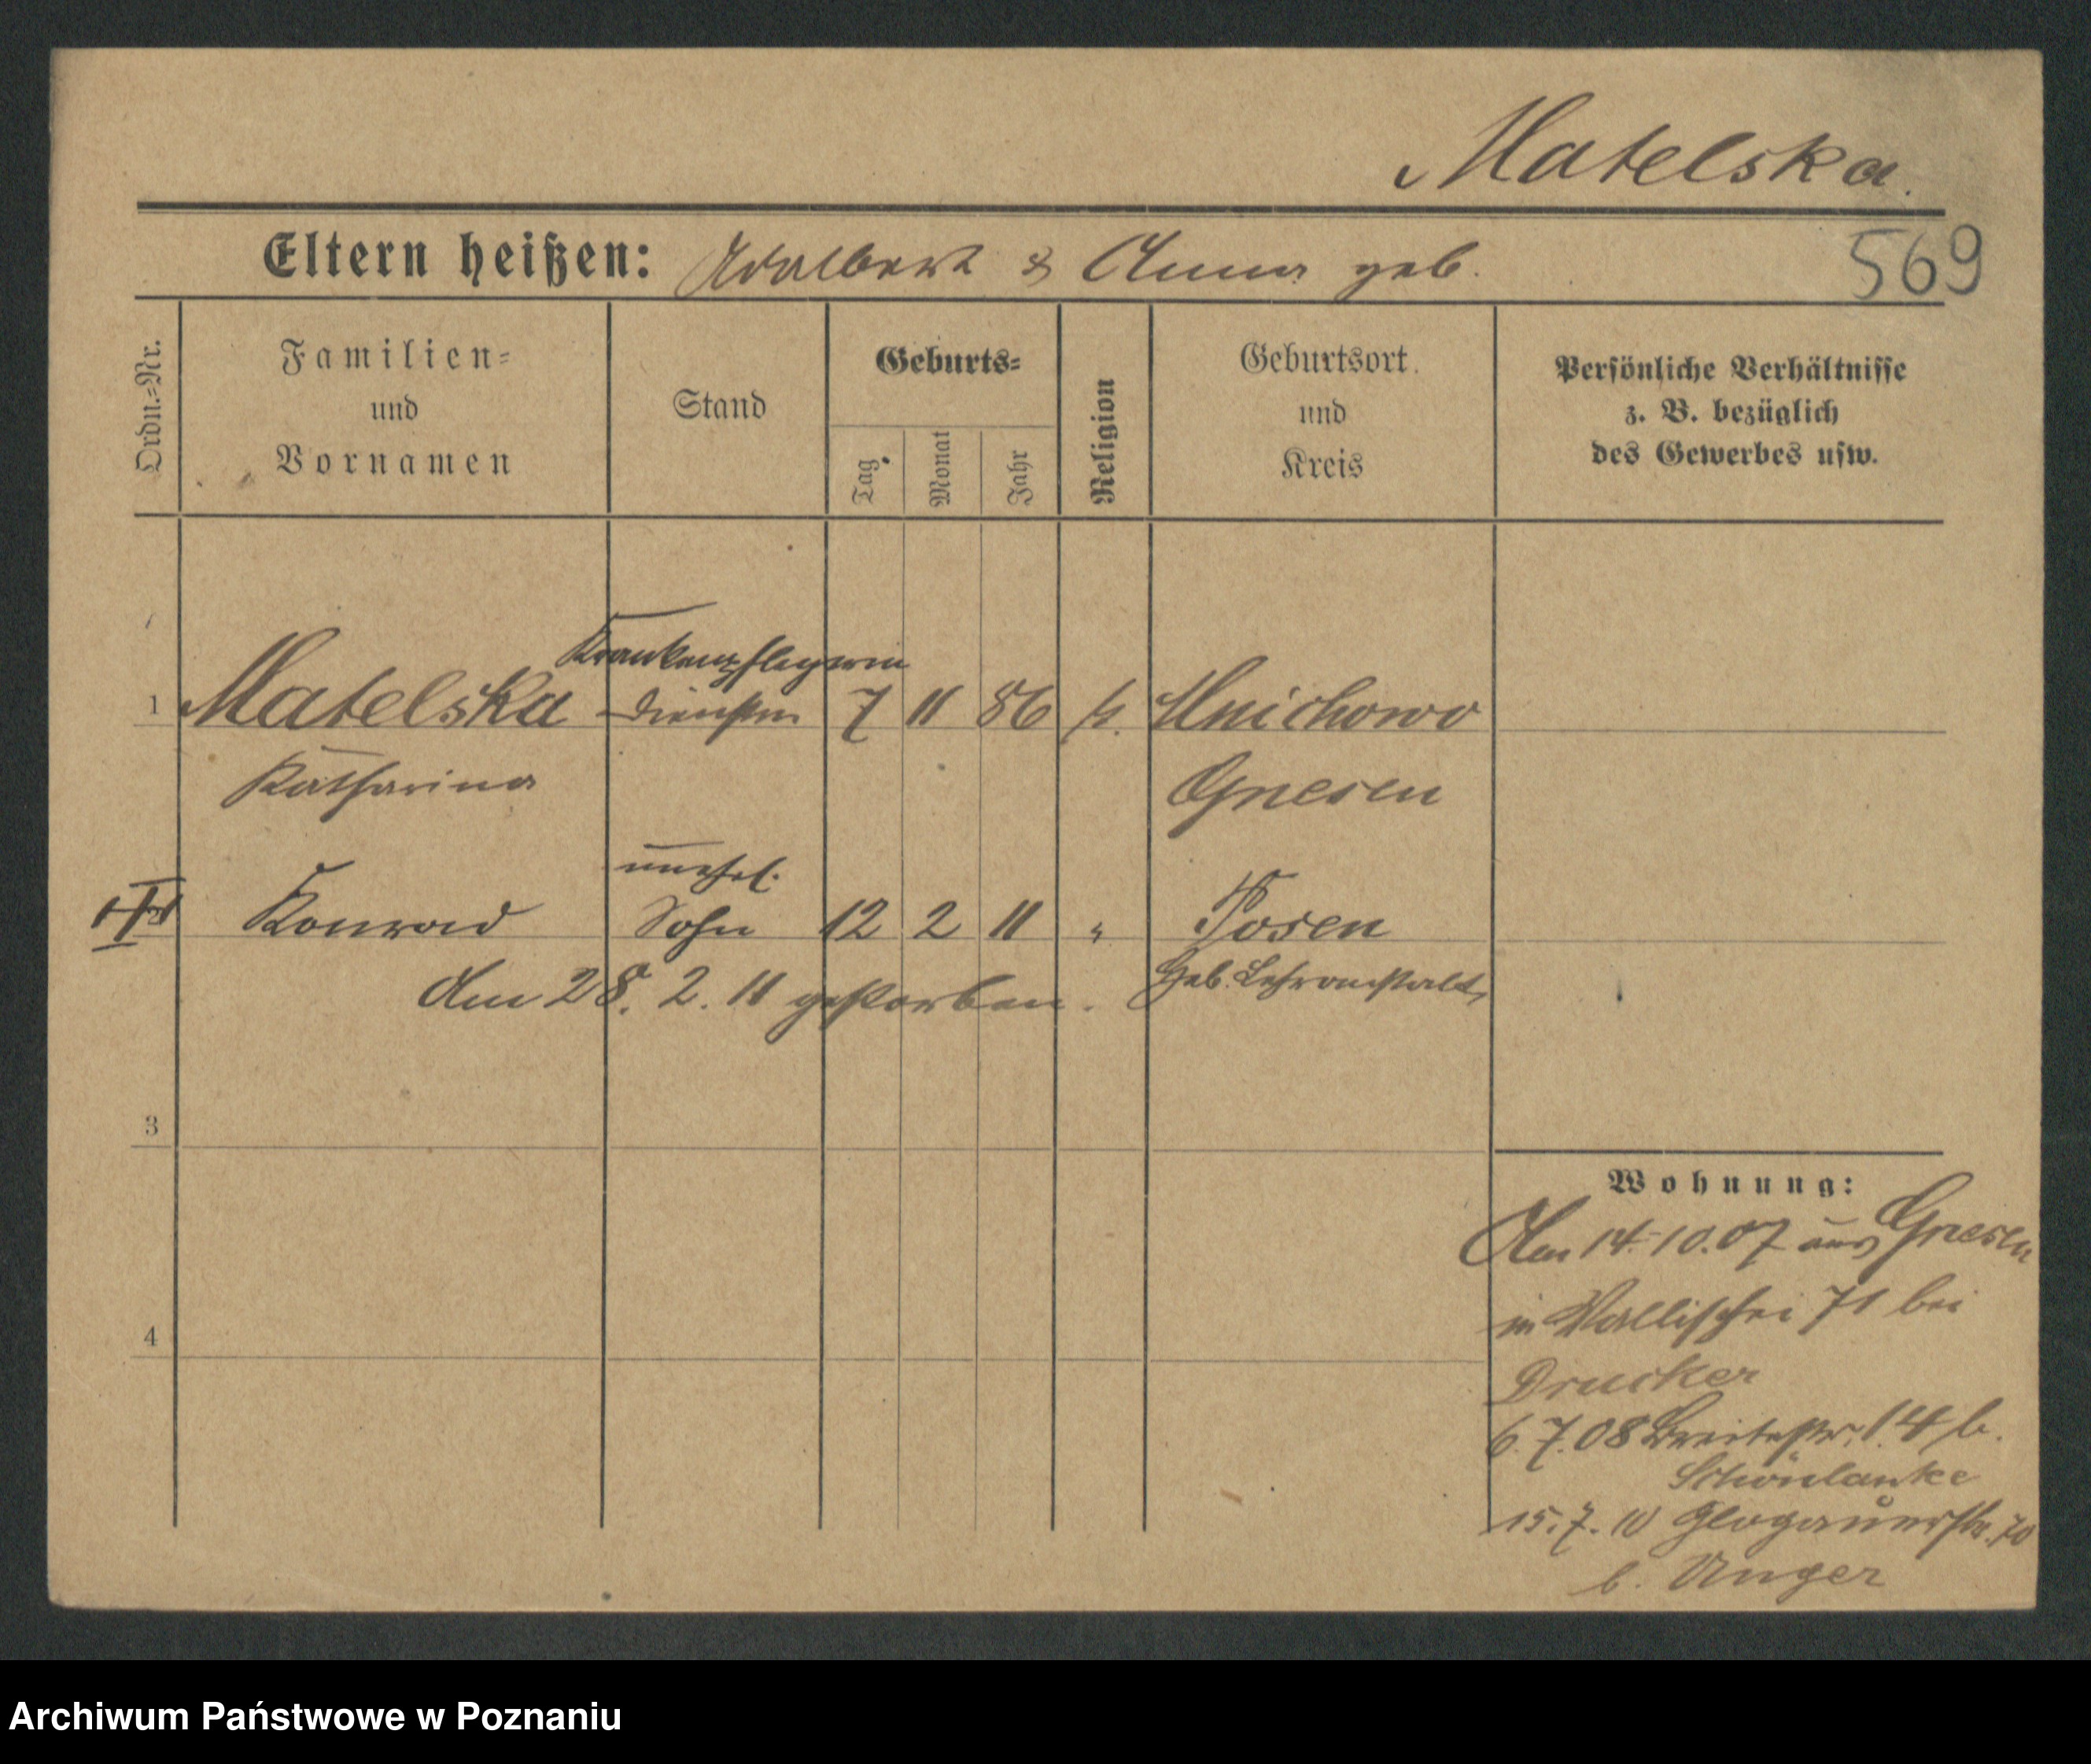 Matelska.
Eltern heißen: Adalbert & Anna geb.
569
Ordn.=Nr.
Familien=
und
Vornamen
Stand
Geburts=
Tag.
Monat
Jahr
Religion
Geburtsort
und
Kreis
Persönliche Verhältnisse
z. B. bezüglich
des Gewerbes usw.
Krankenpflegerin
1 Matelska 7 11 86 k. Mnichowo
Katharina Gnesen
unehel.
Konrad Sohn 12 2 11 " Posen
Am 28. 2. 11 gestorben. Geb. Lehranstalt,
3
4
Wohnung:
Am 14.10.07 aus Gnesen
in Wallischei 71 bei
Drucker
6.7.08 Breitestr. 14 b.
Schönlanke
15.7.10 Glogauerstr. 70
b. Unger
Archiwum Państwowe w Poznaniu